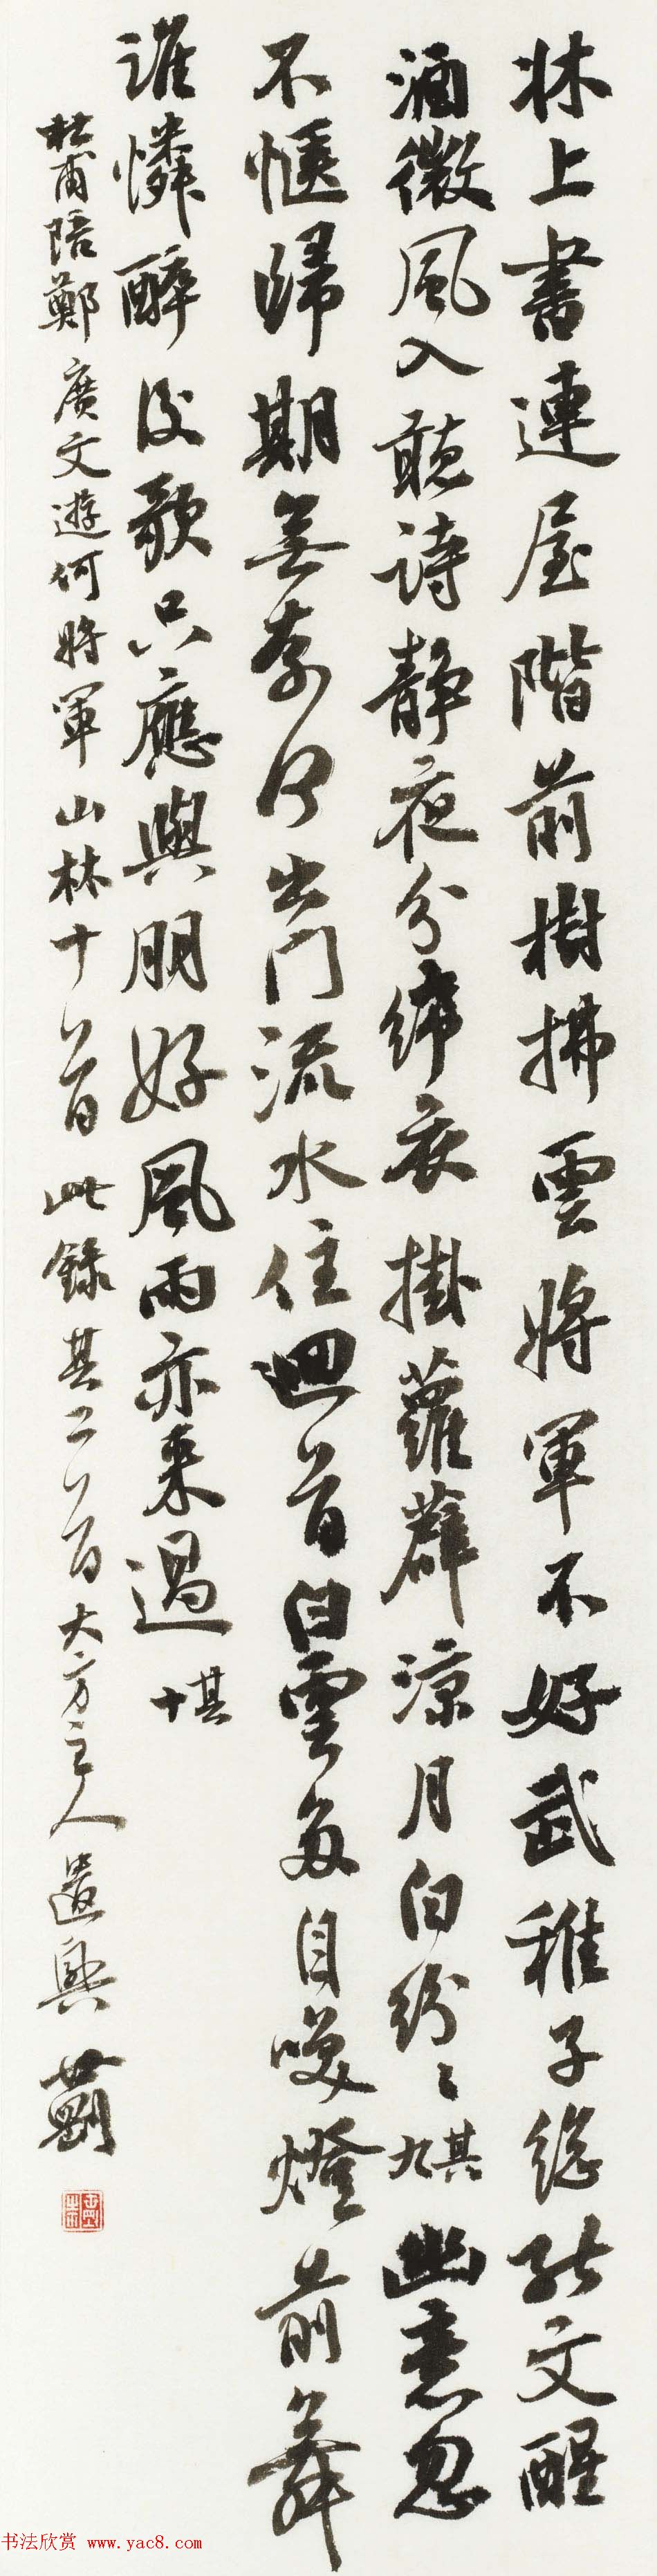 牀上書連屋階前樹拂雲將軍不好武稚子總能文醒
酒微風入聽詩靜夜分絺衣掛蘿薜涼月白紛〻其九幽意忽
不愜歸期無奈何出門流水住迴首白雲多自笑燈前舞
誰憐醉後歌只應與朋好風雨亦来過其十
杜甫陪鄭廣文遊何將軍山林十首此錄其二首大方主人遣興
书法欣赏 www.yac8.com